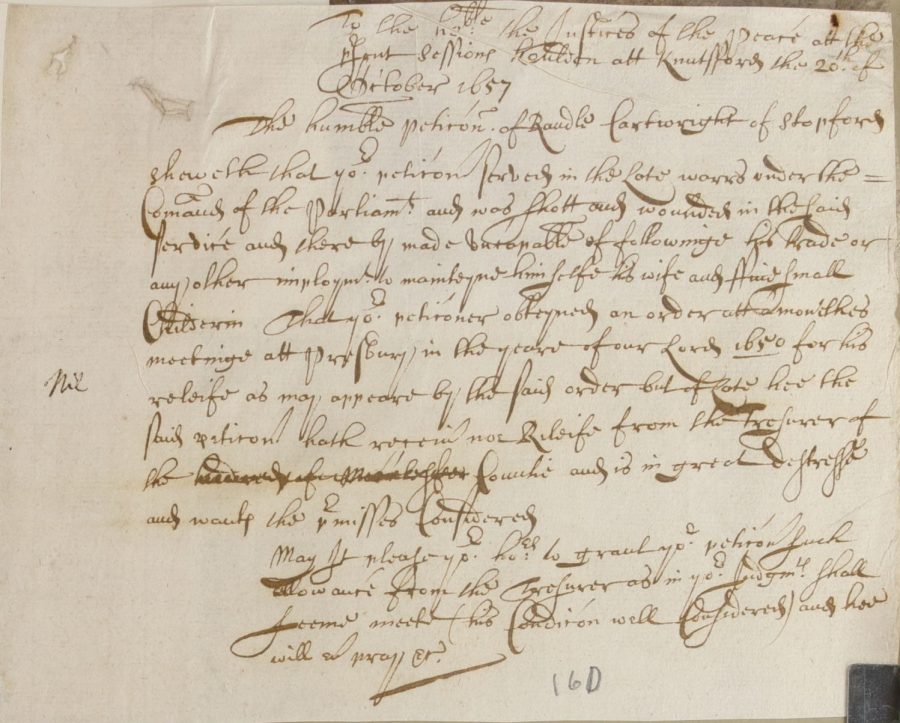 To the ho:ble the Justices of the Peace att the
p'sent Sessions houlden att Knutsford the 20th of
October 1657
The humble peticon of Randle Cartwright of Stopford
Sheweth that yor peticon served in the late warrs under the =
Comand of the Parliamt and was shott and wounded in the said
service and there by made uncapable of followinge his trade or
any other imploymt to mainteyne himselfe his wife and ffive small
Childerin That yor peticoner obteyned an order att a monthes
meetinge att Presbury in the yeare of our Lord 1650 for his
Nil
releife as may appeare by the said order but of late hee the
said peticon hath receiu noe Releife from the Tresurer of
the hundred of Macklesfeer Countie and is in great destresse
and want the p'misses Considered
May It please yor hors to grant yor peticon such
allowance from the Tresurer as in yor Judgmts shall
seeme meete (his Condicon well Considered) and hee
will pray &c:
16D